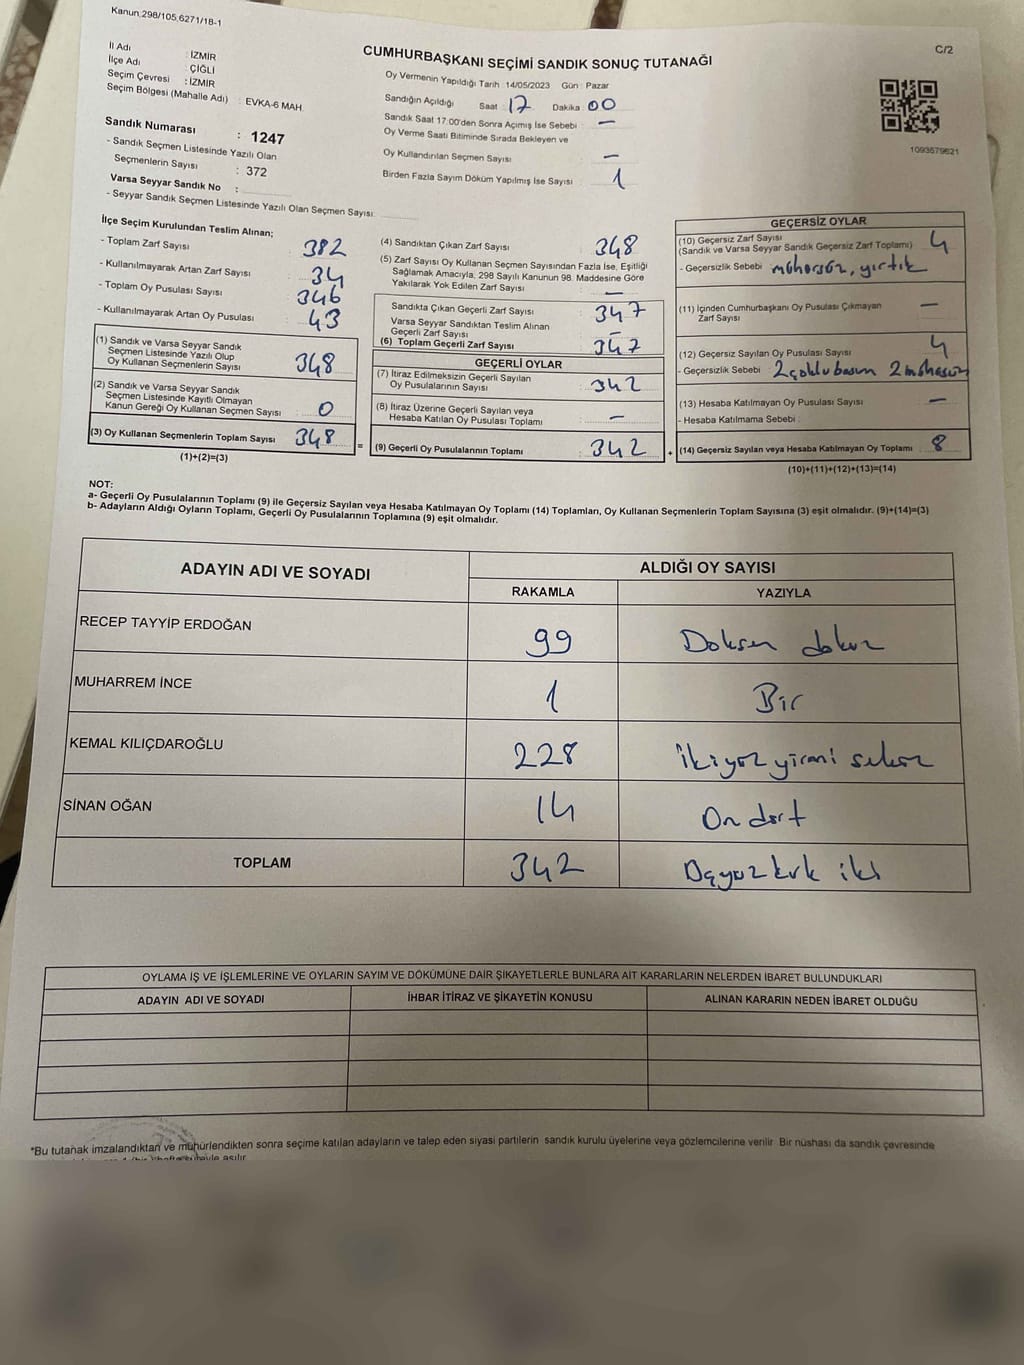 Kanun;298/105,6271/18-1
C/2
CUMHURBAŞKANI SEÇİMİ SANDIK SONUÇ TUTANAĞI
İl Adı : İZMİR
İlçe Adı : ÇİĞLİ
Seçim Çevresi : İZMİR
Seçim Bölgesi (Mahalle Adı) : EVKA-6 MAH.
Sandık Numarası : 1247
- Sandık Seçmen Listesinde Yazılı Olan
Seçmenlerin Sayısı : 372
Varsa Seyyar Sandık No :
- Seyyar Sandık Seçmen Listesinde Yazılı Olan Seçmen Sayısı:
Oy Vermenin Yapıldığı Tarih : 14/05/2023 Gün : Pazar
Sandığın Açıldığı Saat : 17 Dakika : 00
Sandık Saat 17:00'den Sonra Açımış İse Sebebi : —
Oy Verme Saati Bitiminde Sırada Bekleyen ve
Oy Kullandırılan Seçmen Sayısı : —
Birden Fazla Sayım Döküm Yapılmış İse Sayısı : 1
1093579621
İlçe Seçim Kurulundan Teslim Alınan;
- Toplam Zarf Sayısı : 382
- Kullanılmayarak Artan Zarf Sayısı : 34
- Toplam Oy Pusulası Sayısı : 346
- Kullanılmayarak Artan Oy Pusulası : 43
(1) Sandık ve Varsa Seyyar Sandık
Seçmen Listesinde Yazılı Olup
Oy Kullanan Seçmenlerin Sayısı : 348
(2) Sandık ve Varsa Seyyar Sandık
Seçmen Listesinde Kayıtlı Olmayan
Kanun Gereği Oy Kullanan Seçmen Sayısı : 0
(3) Oy Kullanan Seçmenlerin Toplam Sayısı : 348
(1)+(2)=(3)
(4) Sandıktan Çıkan Zarf Sayısı : 348
(5) Zarf Sayısı Oy Kullanan Seçmen Sayısından Fazla İse, Eşitliği
Sağlamak Amacıyla; 298 Sayılı Kanunun 98. Maddesine Göre
Yakılarak Yok Edilen Zarf Sayısı : —
Sandıkta Çıkan Geçerli Zarf Sayısı : 347
Varsa Seyyar Sandıktan Teslim Alınan
Geçerli Zarf Sayısı : —
(6) Toplam Geçerli Zarf Sayısı : 347
GEÇERLİ OYLAR
(7) İtiraz Edilmeksizin Geçerli Sayılan
Oy Pusulalarının Sayısı : 342
(8) İtiraz Üzerine Geçerli Sayılan veya
Hesaba Katılan Oy Pusulası Toplamı : —
= (9) Geçerli Oy Pusulalarının Toplamı : 342
GEÇERSİZ OYLAR
(10) Geçersiz Zarf Sayısı : 4
(Sandık ve Varsa Seyyar Sandık Geçersiz Zarf Toplamı)
- Geçersizlik Sebebi : mühürsüz, yırtık
(11) İçinden Cumhurbaşkanı Oy Pusulası Çıkmayan : —
Zarf Sayısı
(12) Geçersiz Sayılan Oy Pusulası Sayısı : 4
- Geçersizlik Sebebi : 2 çoklu basım 2 mühürsüz
(13) Hesaba Katılmayan Oy Pusulası Sayısı : —
- Hesaba Katılmama Sebebi :
+ (14) Geçersiz Sayılan veya Hesaba Katılmayan Oy Toplamı : 8
(10)+(11)+(12)+(13)=(14)
NOT:
a- Geçerli Oy Pusulalarının Toplamı (9) ile Geçersiz Sayılan veya Hesaba Katılmayan Oy Toplamı (14) Toplamları, Oy Kullanan Seçmenlerin Toplam Sayısına (3) eşit olmalıdır. (9)+(14)=(3)
b- Adayların Aldığı Oyların Toplamı, Geçerli Oy Pusulalarının Toplamına (9) eşit olmalıdır.
ADAYIN ADI VE SOYADI ALDIĞI OY SAYISI
RAKAMLA YAZIYLA
RECEP TAYYİP ERDOĞAN 99 Doksan dokuz
MUHARREM İNCE 1 Bir
KEMAL KILIÇDAROĞLU 228 ikiyüz yirmi sekiz
SİNAN OĞAN 14 On dört
TOPLAM 342 Üçyüz kırk iki
OYLAMA İŞ VE İŞLEMLERİNE VE OYLARIN SAYIM VE DÖKÜMÜNE DAİR ŞİKAYETLERLE BUNLARA AİT KARARLARIN NELERDEN İBARET BULUNDUKLARI
ADAYIN ADI VE SOYADI İHBAR İTİRAZ VE ŞİKAYETİN KONUSU ALINAN KARARIN NEDEN İBARET OLDUĞU
*Bu tutanak imzalandıktan ve mühürlendikten sonra seçime katılan adayların ve talep eden siyasi partilerin sandık kurulu üyelerine veya gözlemcilerine verilir. Bir nüshası da sandık çevresinde